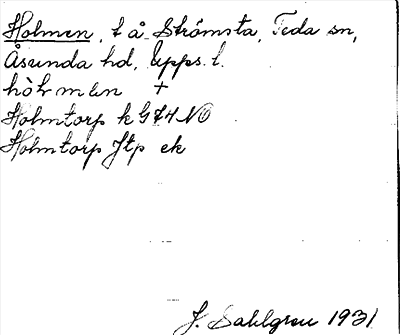 Holmen, t å Strömsta, Teda sn,
Åsunda hd, Upps. l.
hòlmen +
Holmtorp k G74 NO
Holmtorp Jtp ek
J. Sahlgren 1931